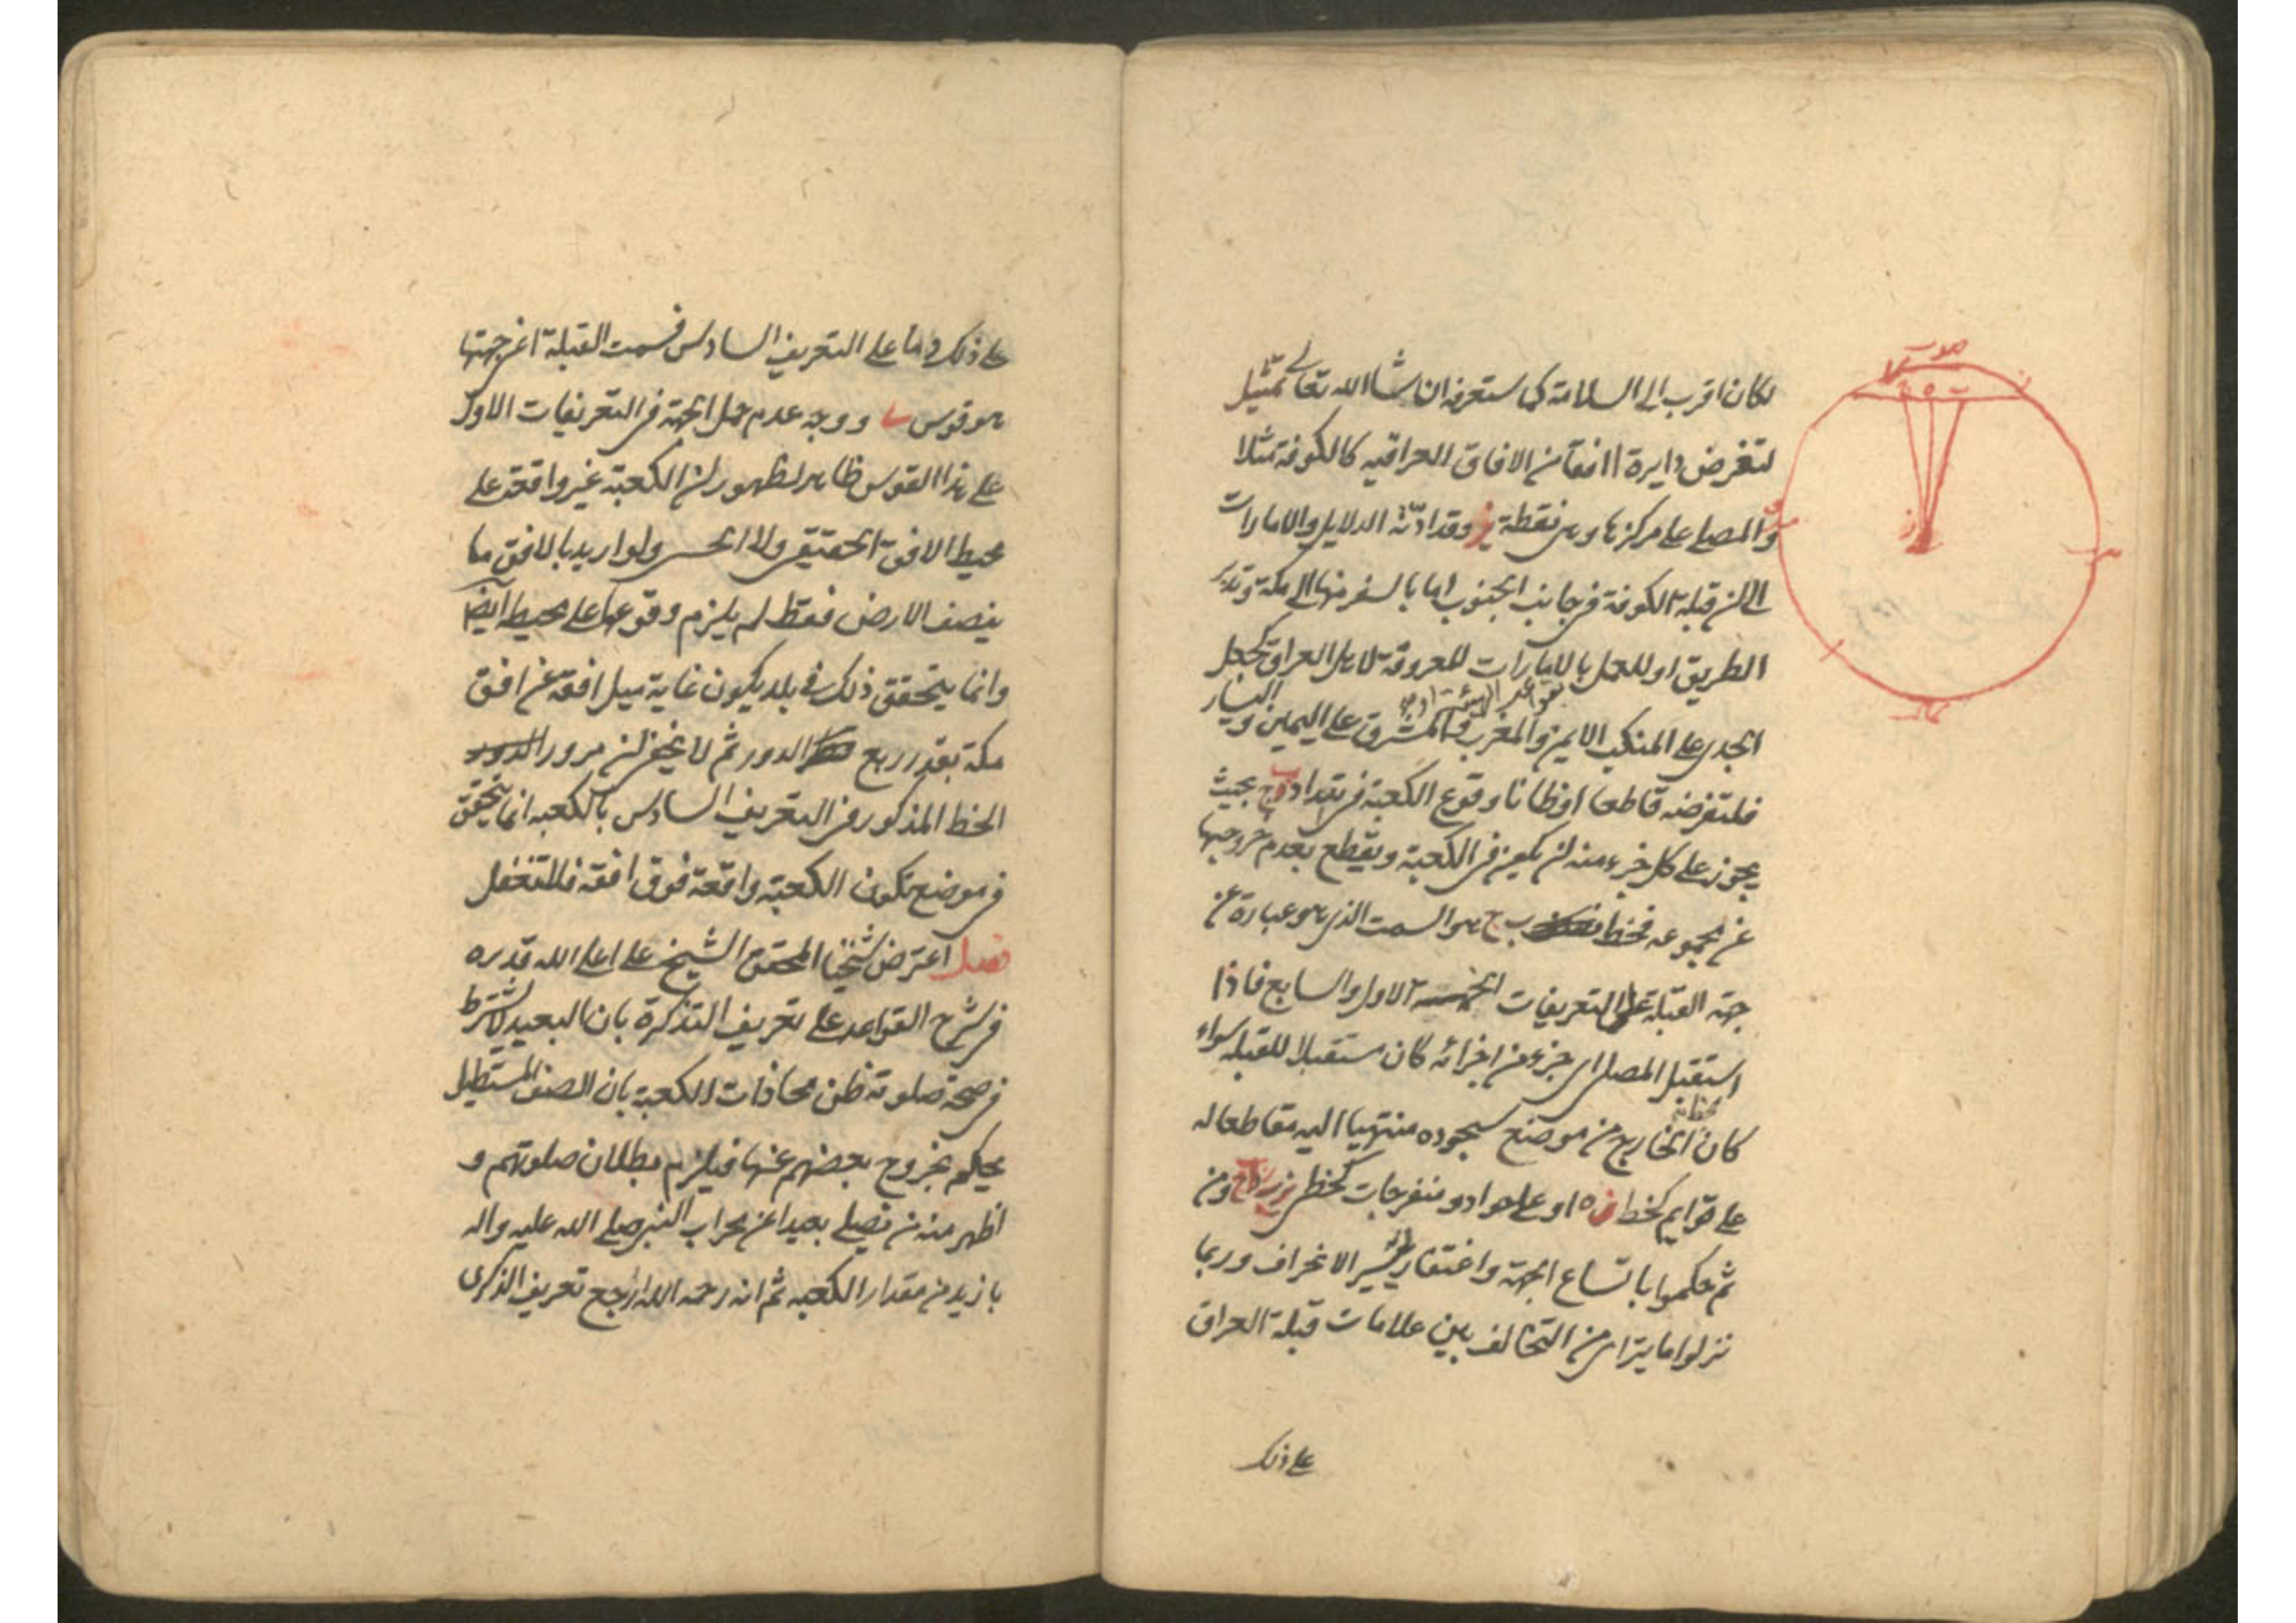 لكان اقرب الى السلامة كما ستعرفه ان شاالله تعالى تمثيل
لنفرض دايرة افقا من الافاق العراقيه كالكوفة مثلا
والمصلى على مركزها وهى نقطة ز وقد ادّته الدلايل والامارات
الى ان قبلة الكوفة فى جانب الجنوب اما بالسفر منها الى مكة وتدبر
الطريق او للعمل بالامارات المعروفة لاهل العراق كجعل
بقواعد الهيئة او
الجدى على المنكب الايمن والمغرب والمشرق على اليمين واليسار
فلنفرضه قاطعا او ظانا وقوع الكعبة فى بعد اد بحيث
يجوز على كل جزء منه ان يكون فى الكعبة ويقطع بعدم خروجها
عن مجموعه فخط ب ج هو السمت الذى هو عبارة عن
جهة القبلة على التعريفات الخمسة الاول والسابع فاذا
استقبل المصلى اى جزء من اجزائه كان مستقبلا للقبله سواء
كان الخارج من موضع سجوده منتهيا اليه مقاطعا له
على قوايم كخط ز ه او على حواد ومنفرجات كخطى ومن
ثم حكموا باتساع الجهة واغتفار يسير الانحراف وربما
نزلوا ما يتراى من التخالف بين علامات قبلة العراق
على ذلك
جنوب
شمال
على ذلك واما على التعريف السادس فسمت القبلة اعنى جهتها
هو قوس ووجه عدم حمل الجهة فى التعريفات الاول
على هذا القوس ظاهر لظهور ان الكعبة غير واقعة على
محيط الافق الحقيقى ولا الحسى ولو اريد بالافق ما
ينصف الارض فقط لم يلزم وقوعها على محيطه ايضا
وانما يتحقق ذلك فى بلد يكون غاية ميل افقه عن افق
مكة بقدر ربع الدور ثم لا يخفى ان مرور الدور
الخط المذكور فى التعريف السادس بالكعبه انما يتحقق
فى موضع تكون الكعبة واقعة فوق افقه فلا تغفل
فصل اعترض شيخنا المحقق الشيخ على اعلى الله قدره
فى شرح القواعد على تعريف التذكرة بان البعيد لا يشترط
فى صحة صلوته ظن محاذات الكعبة بان الصف المستطيل
يحكم بخروج بعضهم عنها فيلزم بطلان صلوتهم و
اظهر منه من يصلى بعيدا عن محراب النبى صلى الله عليه واله
بازيد من مقدار الكعبه ثم انه رحمه الله ارجع تعريف الذكرى